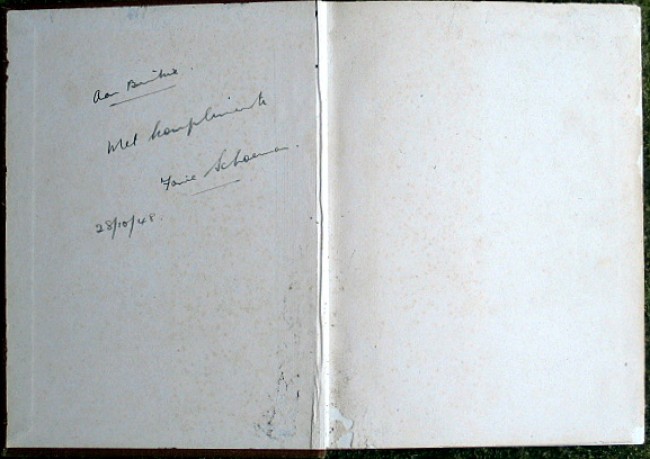 Aan
Met komplimente
Fanie Schoeman.
28/10/48.